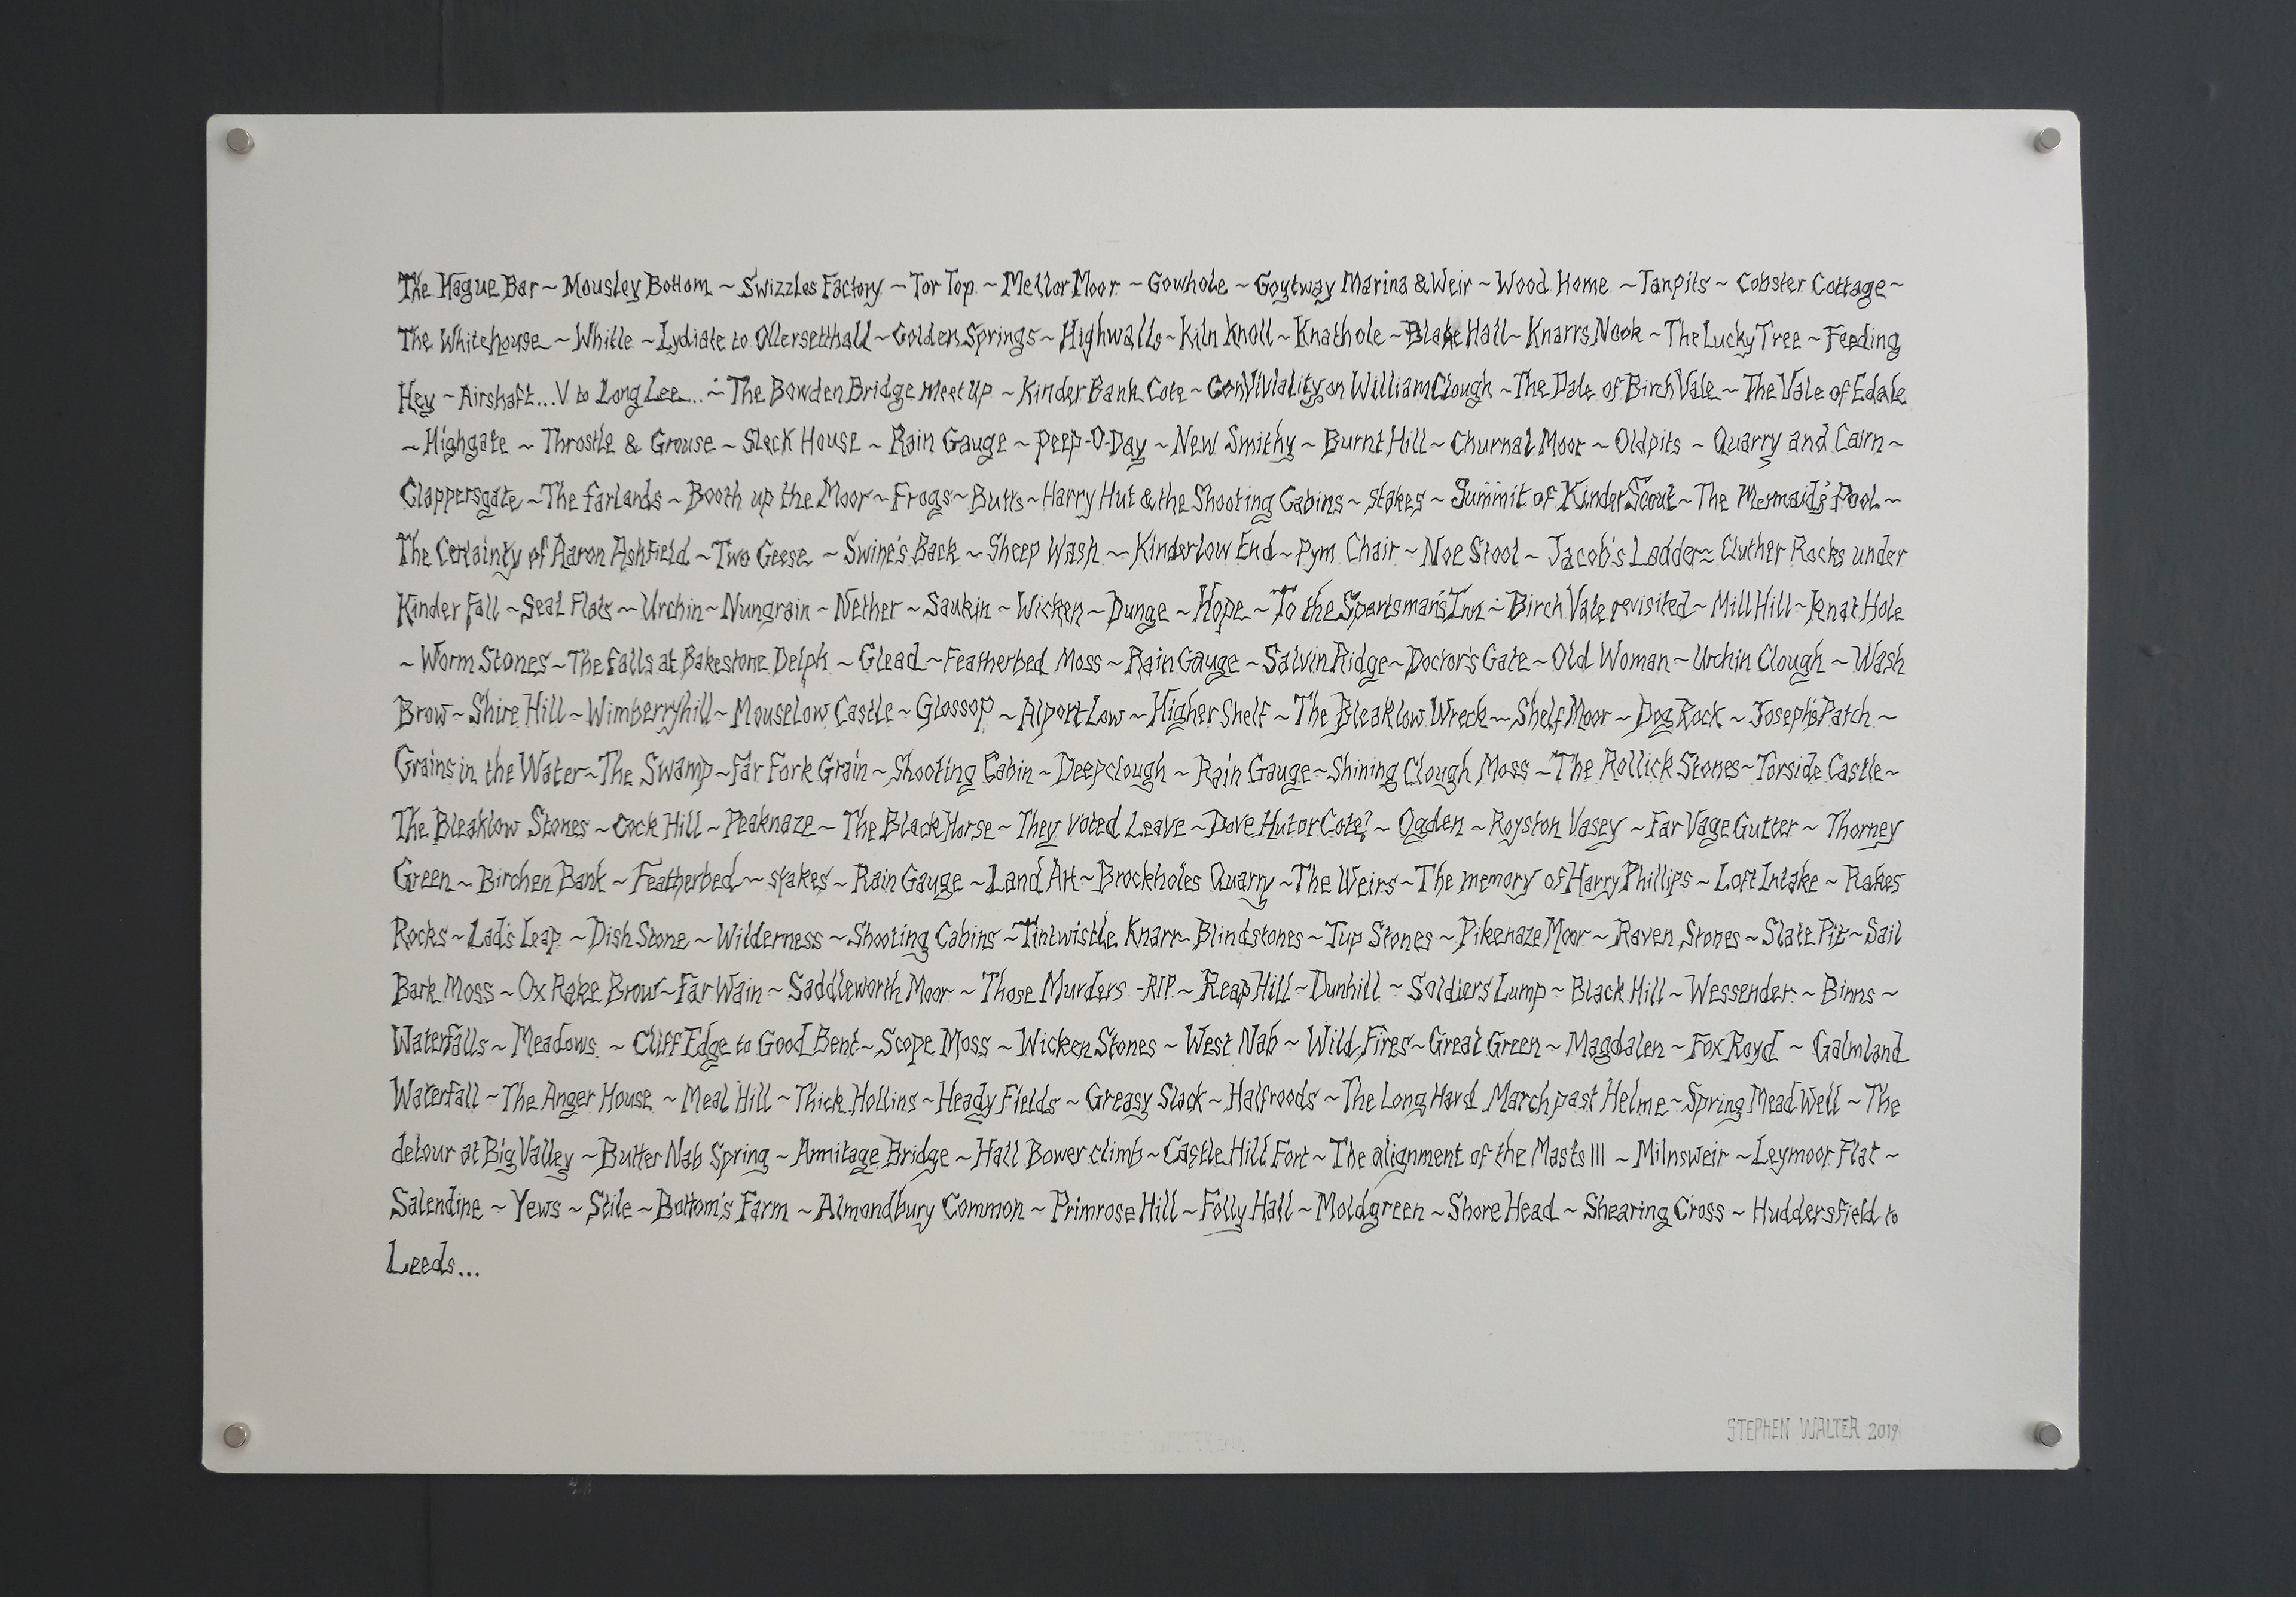 The Hague Bar ~ Mousley Bottom ~ Swizzles Factory ~ Tor Top ~ Mellor Moor ~ Gowhole ~ Goytway Marina & Weir ~ Wood Home ~ Tanpits ~ Cobster Cottage ~
The Whitehouse ~ Whitle ~ Lydiate to Ollersetthall ~ Golden Springs ~ Highwalls ~ Kiln Knoll ~ Knathole ~ Blake Hall ~ Knarrs Nook ~ The Lucky Tree ~ Feeding
Hey ~ Airshaft...V to Long Lee... ~ The Bowden Bridge Meet Up ~ Kinder Bank Cote ~ Conviviality on William Clough ~ The Dale of Birch Vale ~ The Vale of Edale
~ Highgate ~ Throstle & Grouse ~ Slack House ~ Rain Gauge ~ Peep-O-Day ~ New Smithy ~ Burnt Hill ~ Churnal Moor ~ Oldpits ~ Quarry and Cairn ~
Clappersgate ~ The Farlands ~ Booth up the Moor ~ Frogs ~ Butts ~ Harry Hut & the Shooting Cabins ~ Stakes ~ Summit of Kinder Scout ~ The Mermaid's Pool ~
The Certainty of Aaron Ashfield ~ Two Geese ~ Swine's Back ~ Sheep Wash ~ Kinderlow End ~ Pym Chair ~ Noe Stool ~ Jacob's Ladder ~ Cluther Rocks under
Kinder Fall ~ Seal Flats ~ Urchin ~ Nungrain ~ Nether ~ Saukin ~ Wicken ~ Dunge ~ Hope ~ To the Sportsman's Inn ~ Birch Vale revisited ~ Mill Hill ~ Knat Hole
~ Worm Stones ~ The falls at Bakestone Delph ~ Glead ~ Featherbed Moss ~ Rain Gauge ~ Salvin Ridge ~ Doctor's Gate ~ Old Woman ~ Urchin Clough ~ Wash
Brow ~ Shire Hill ~ Wimberryhill ~ Mouselow Castle ~ Glossop ~ Alport Low ~ Higher Shelf ~ The Bleaklow Wreck ~ Shelf Moor ~ Dog Rock ~ Joseph's Patch ~
Grains in the Water ~ The Swamp ~ Far Fork Grain ~ Shooting Cabin ~ Deepclough ~ Rain Gauge ~ Shining Clough Moss ~ The Rollick Stones ~ Torside Castle ~
The Bleaklow Stones ~ Cock Hill ~ Peaknaze ~ The Black Horse ~ They voted Leave ~ Dove Hut or Cote? ~ Ogden ~ Royston Vasey ~ Far Vage Gutter ~ Thorney
Green ~ Birchen Bank ~ Featherbed ~ stakes ~ Rain Gauge ~ Land Art ~ Brockholes Quarry ~ The Weirs ~ The memory of Harry Phillips ~ Loft Intake ~ Rakes
Rocks ~ Lad's Leap ~ Dish Stone ~ Wilderness ~ Shooting Cabins ~ Tintwistle Knarr ~ Blindstones ~ Tup Stones ~ Pikenaze Moor ~ Raven Stones ~ Slate Pit ~ Sail
Bark Moss ~ Ox Rake Brow ~ Far Wain ~ Saddleworth Moor ~ Those Murders - RIP ~ Reap Hill ~ Dunhill ~ Soldiers Lump ~ Black Hill ~ Wessender ~ Binns ~
Waterfalls ~ Meadows ~ Cliff Edge to Good Bent ~ Scope Moss ~ Wicken Stones ~ West Nab ~ Wild Fires ~ Great Green ~ Magdalen ~ Fox Royd ~ Galmland
Waterfall ~ The Anger House ~ Meal Hill ~ Thick Hollins ~ Heady Fields ~ Greasy Slack ~ Halfroods ~ The Long Hard March past Helme ~ Spring Mead Well ~ The
detour at Big Valley ~ Butter Nab Spring ~ Armitage Bridge ~ Hall Bower climb ~ Castle Hill Fort ~ The alignment of the Masts III ~ Milnsweir ~ Leymoor Flat ~
Salendine ~ Yews ~ Stile ~ Bottom's Farm ~ Almondbury Common ~ Primrose Hill ~ Folly Hall ~ Moldgreen ~ Shore Head ~ Shearing Cross ~ Huddersfield to
Leeds...
STEPHEN WALTER 2019